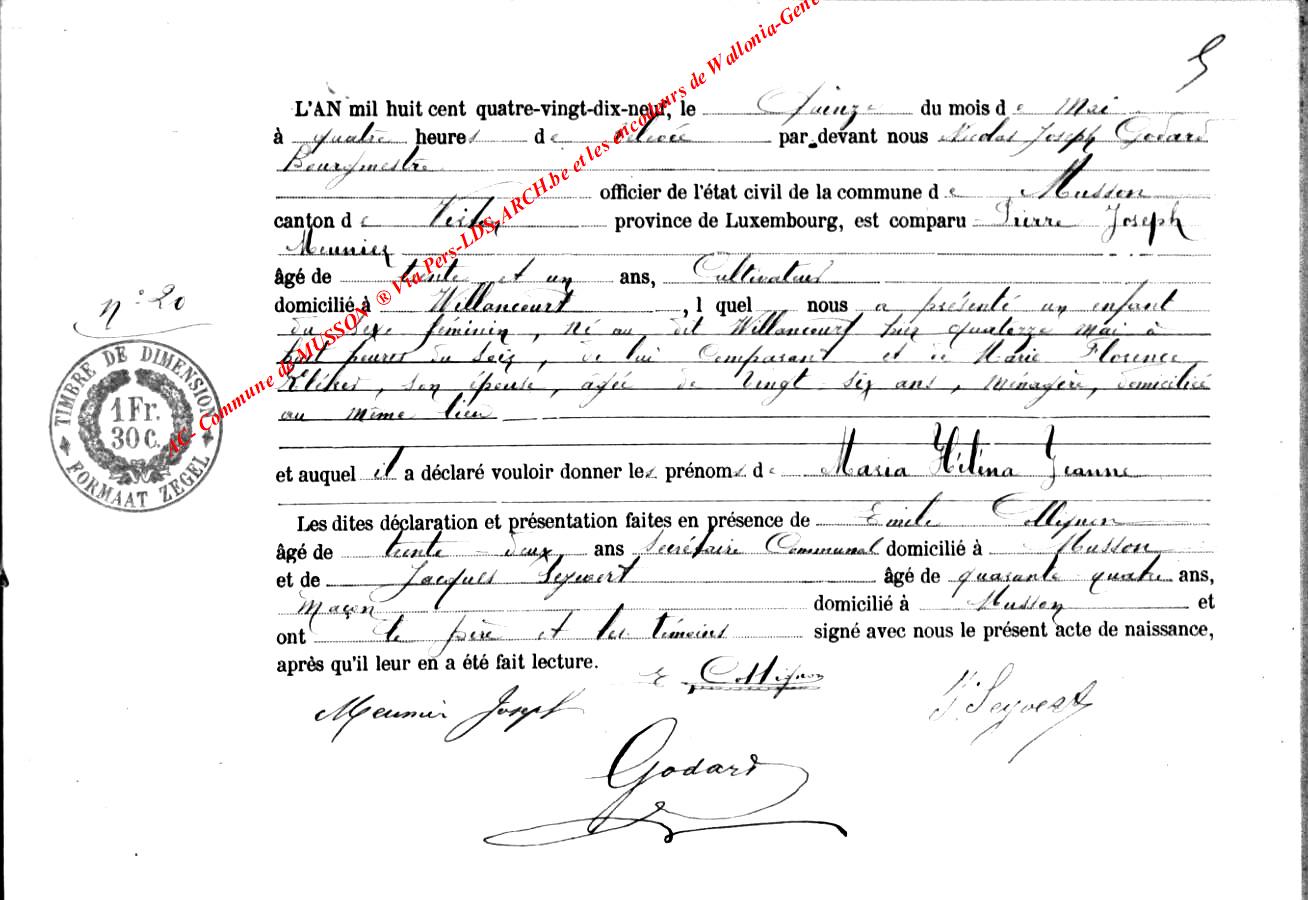 5
L'AN mil huit cent quatre-vingt-dix-neuf, le Quinze du mois de Mai
à quatre heures de relevée par devant nous Nicolas Joseph Godard
Bourgmestre
officier de l'état civil de la commune de Musson
canton de Virton province de Luxembourg, est comparu Pierre Joseph
Meunier
âgé de trente et un ans, Cultivateur
domicilié à Willancourt, lquel nous a présenté un enfant
du sexe féminin, né au dit Willancourt hier quatorze mai à
huit heures du soir, de lui Comparant et de Marie Florence
son épouse, âgée de vingt six ans, ménagère, domiciliée
au même lieu
et auquel il a déclaré vouloir donner les prénoms de Maria Héléna Jeanne
Les dites déclaration et présentation faites en présence de Emile Collignon
âgé de trente deux ans Secrétaire Communal domicilié à Musson
et de Jacques Seywert âgé de quarante quatre ans,
Maçon domicilié à Musson et
ont le père et les témoins signé avec nous le présent acte de naissance,
après qu'il leur en a été fait lecture.
E Collignon
Meunier Joseph
J. Seywert
Godard
n° 20
TIMBRE DE DIMENSION
1 Fr.
30 C.
FORMAAT ZEGEL
AC- Commune de MUSSON ® Via Pers-LDS-ARCH.be et les encodeurs de Wallonia-Gene